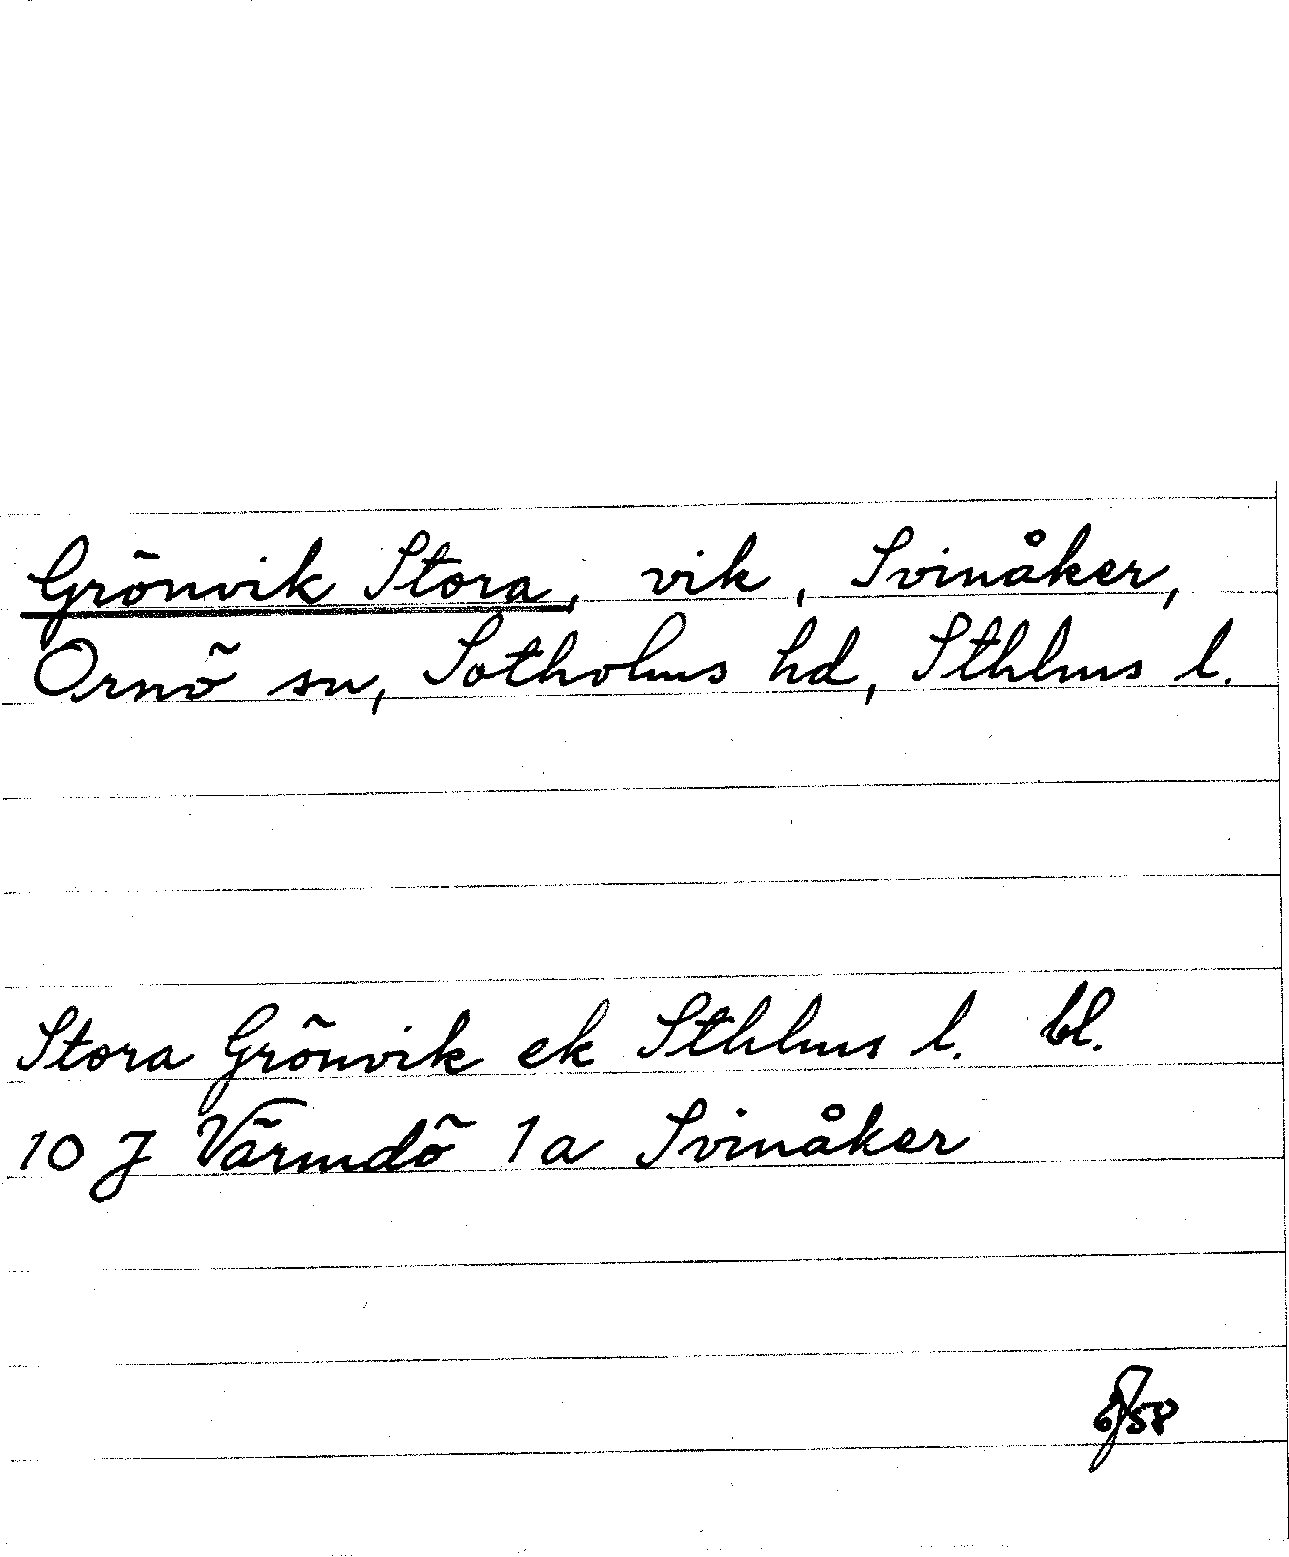 Grönvik Stora, vik, Svinåker,
Ornö sn, Sotholms hd, Sthlms l.
Stora Grönvik ek Sthlms l. bl.
10 J Värmdö 1a Svinåker